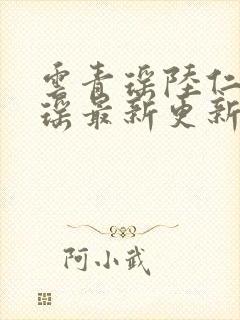 雲青瑶陸仁
瑶最新更新
阿小武